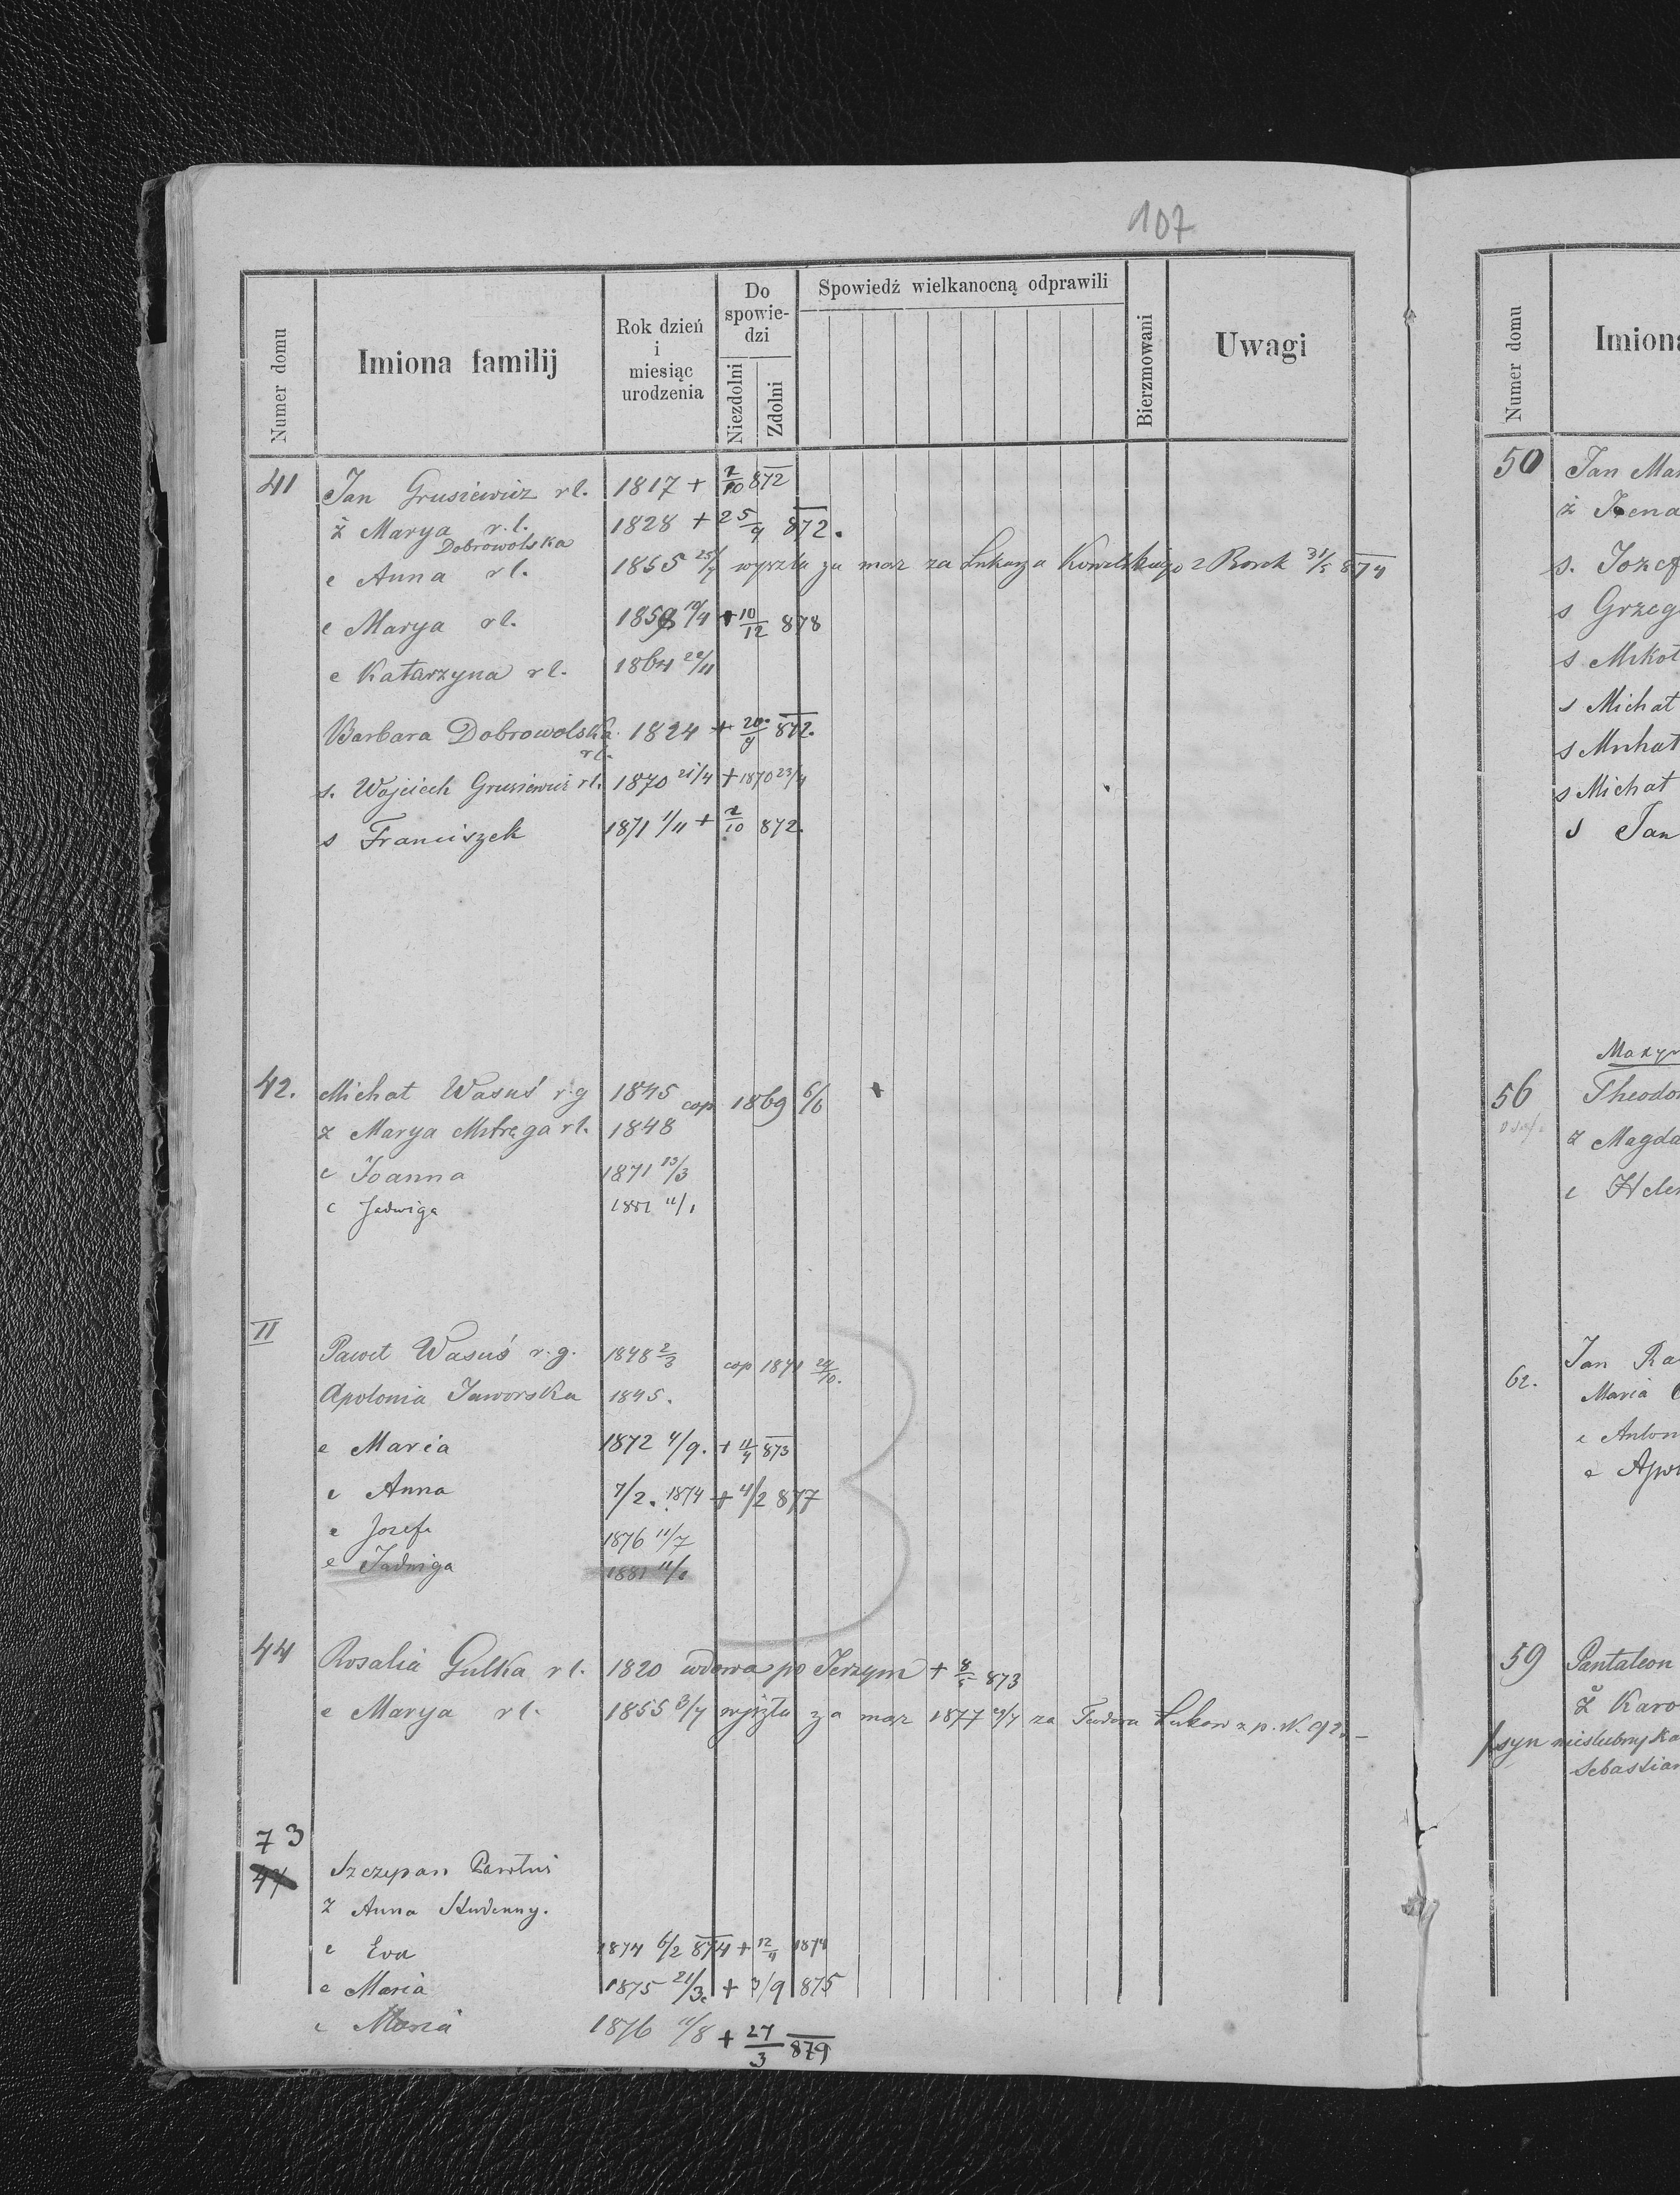 107
Numer domu
Imiona familij
Rok dzień i miesiąc urodzenia
Do spowiedzi
Niezdolni
Zdolni
Spowiedź wielkanocną odprawili
Bierzmowani
Uwagi
41 Jan Grusiewicz rl. 1817 + 2/10 872
ż Marya r.l. 1828 + 25/9 872.
Dobrowolska
c Anna rl. 1855 25/7 wyszła za mąż za Łukasza Kowalskiego z Borek 31/5 874
c Marya rl. 1859 10/4 + 10/12 878
c Katarzyna rl. 1864 22/11
Barbara Dobrowolska rl. 1824 + 20/9 872.
s. Wojciech Grusiewicz rl. 1870 21/4 + 1870 23/4
s Franciszek 1871 1/11 + 2/10 872.
42. Michał Wasuś r.g 1845 cop 1869 6/6 +
ż Marya Mitręga rl. 1848
c Joanna 1871 13/3
c Jadwiga 1881 11/1
II
Paweł Wasuś r.g. 1848 2/3 cop 1871 24/10.
Apolonia Jaworska 1845.
c Maria 1872 4/9. + 11/4 873
c Anna 7/2. 1874 + 4/2 877
c Józefa 1876 11/7
c Jadwiga 1881 11/1
44 Rosalia Gulka rl. 1820 wdowa po Jerzym + 8/5 873
c Marya rl. 1855 3/7 wyszła za mąż 1877 za N. 92.–
73
47 Szczepan Pawluś
ż Anna Studenny.
c Eva 1874 6/2 874 + 12/4 1874
c Maria 1875 21/3 + 3/9 875
c Maria 1876 11/8 + 27/3 879
Numer domu
Imiona
50 Jan
s. Józef
s Grzeg
s Mikoł
s Michał
s Michał
s Michał
s Jan
56 Theodo
ż Magda
c Hele
62. Jan Ra
Maria
c Anton
c Apo
59 Pantaleon
ż Karo
syn nieślubny Ka
Sebastian